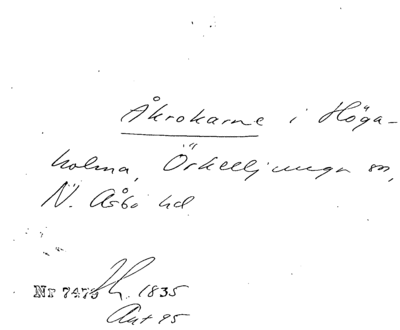 Åkrokarne i Höga-
holma, Örkelljunga sn,
N. Åsbo hd
Nr 7475 1835
Aut 95